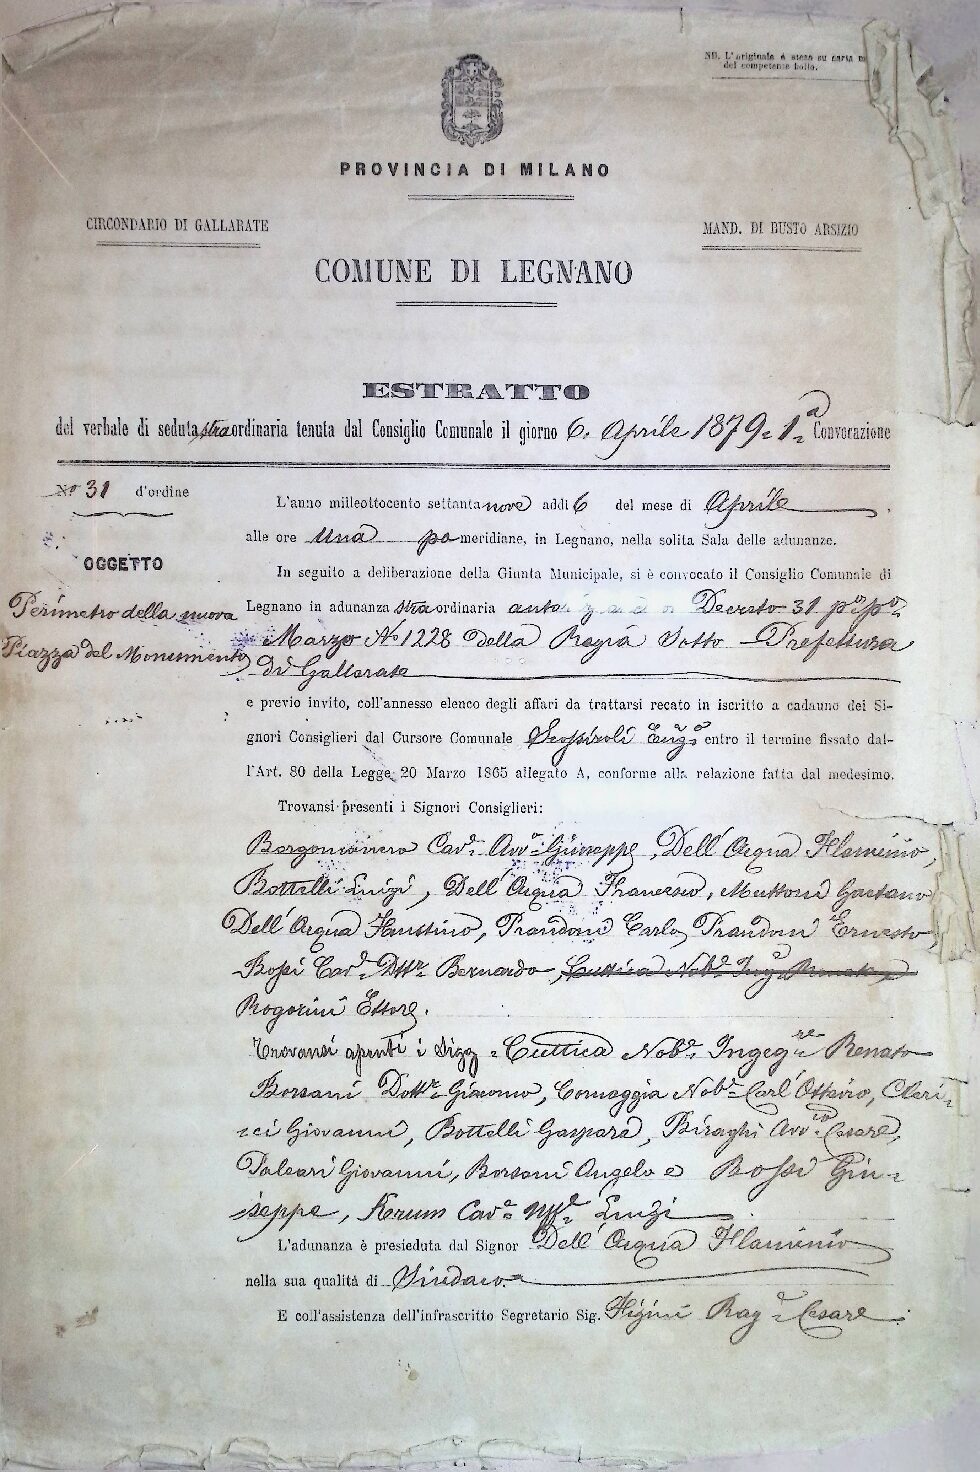 NB. L'originale è steso su carta
del competente bollo.
PROVINCIA DI MILANO
CIRCONDARIO DI GALLARATE
MAND. DI BUSTO ARSIZIO
COMUNE DI LEGNANO
ESTRATTO
del verbale di seduta straordinaria tenuta dal Consiglio Comunale il giorno 6. Aprile 1879 - 1ª Convocazione
Nº 31 d'ordine
OGGETTO
Perimetro della nuova
Piazza del Monumento
L'anno milleottocento settantanove addì 6 del mese di Aprile
alle ore una pomeridiane, in Legnano, nella solita Sala delle adunanze.
In seguito a deliberazione della Giunta Municipale, si è convocato il Consiglio Comunale di
Legnano in adunanza straordinaria Decreto 31 pº pº
Marzo Nº 1228 della Regia Sotto Prefettura
di Gallarate
e previo invito, coll'annesso elenco degli affari da trattarsi recato in iscritto a cadauno dei Si-
gnori Consiglieri dal Cursore Comunale entro il termine fissato dal-
l'Art. 80 della Legge 20 Marzo 1865 allegato A, conforme alla relazione fatta dal medesimo.
Trovansi presenti i Signori Consiglieri:
Bergomanero Cavʳ Avvº Giuseppe, Dell'Acqua Flaminio,
Bottelli Luigi, Dell'Acqua Francesco, Mussoni Gaetano
Dell'Acqua Faustino, Prandoni Carlo, Prandoni Ernesto
Bossi Cavʳ Dttʳ Bernardo, Cuttica Nobʳ Ingʳ Renato,
Rogorini Ettore.
Trovansi assenti i Sigg. Cuttica Nobʳ Ingegʳᵉ Renato
Borsani Dottʳ Giacomo, Cornaggia Nobʳ Carl'Ottavio, Cleri-
ci Giovanni, Bottelli Gaspare, Biraghi Avvᵗᵒ Cesare,
Paleari Giovanni, Borsani Angelo e Bossi Giu-
seppe, Krum Cavʳ Luigi
L'adunanza è presieduta dal Signor Dell'Acqua Flaminio
nella sua qualità di Sindaco
E coll'assistenza dell'infrascritto Segretario Sig. Figini Ragʳ Cesare.